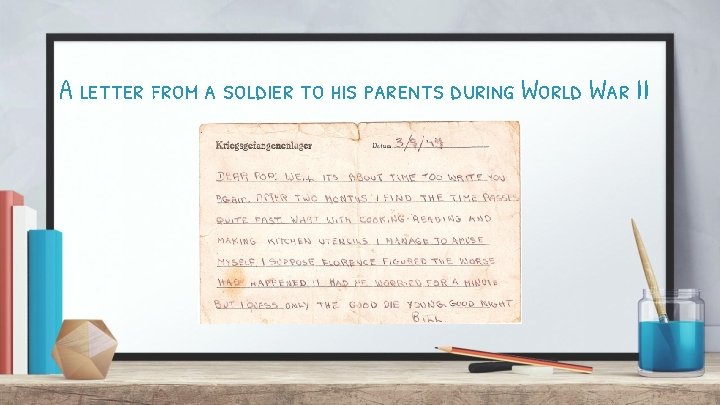 A LETTER FROM A SOLDIER TO HIS PARENTS DURING WORLD WAR II
Kriegsgefangenenlager Datum
DEAR POP. WELL ITS ABOUT TIME TOO WRITE YOU
AGAIN. AFTER TWO MONTHS I FIND THE TIME PASSES
QUITE FAST. WHAT WITH COOKING-READING AND
MAKING KITCHEN UTENCILS I MANAGE TO AMUSE
MYSELF. I SUPPOSE FLORENCE FIGURED THE WORSE
HAD HAPPENED. I HAD ME WORRIED FOR A MINUTE
BUT I GUESS ONLY THE GOOD DIE YOUNG. GOOD NIGHT
BILL